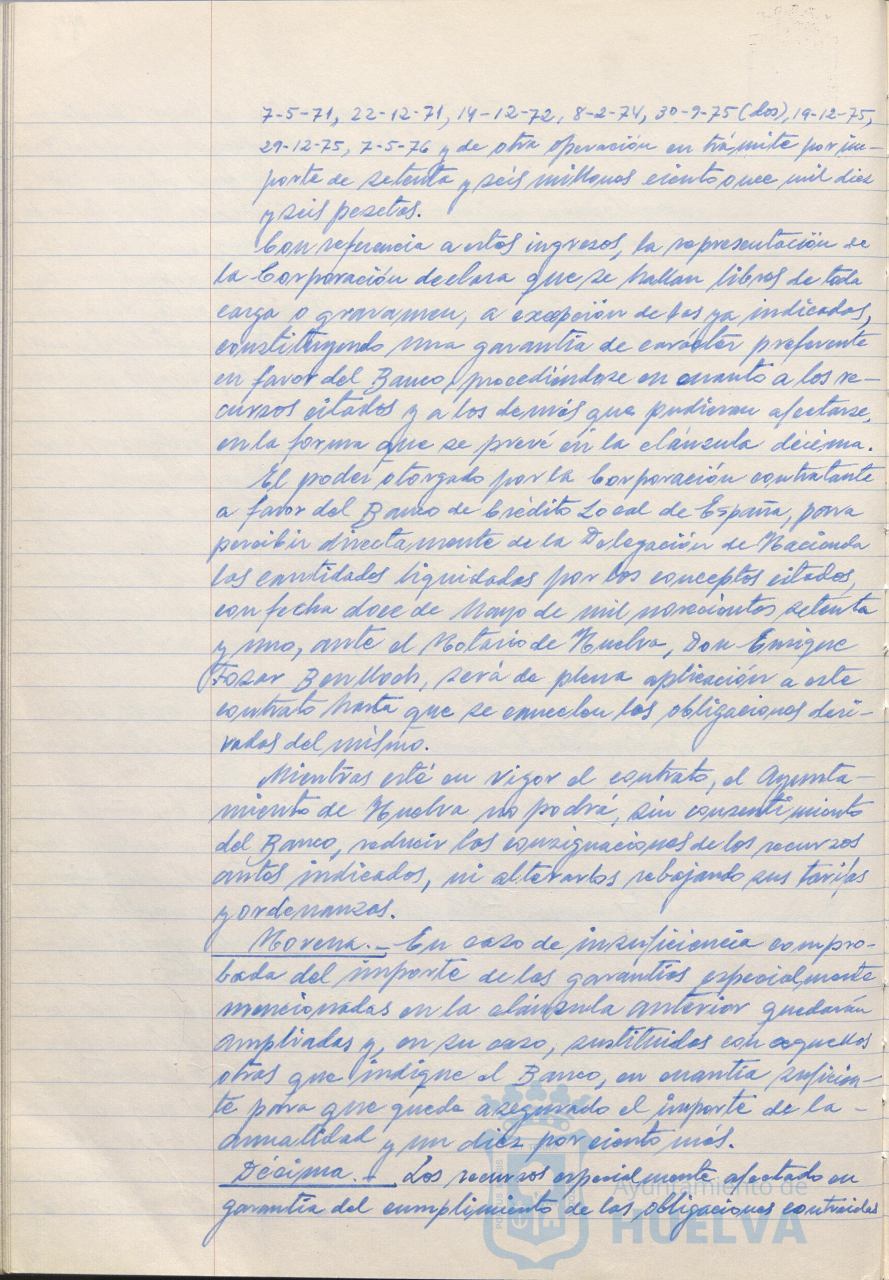 7-5-71, 22-12-71, 14-12-72, 8-2-74, 30-9-75 (dos), 19-12-75,
29-12-75, 7-5-76 y de otra operación en trámite por im-
porte de setenta y seis millones ciento once mil diez
y seis pesetas.
Con referencia a estos ingresos, la representación de
la Corporación declara que se hallan libres de toda
carga o gravamen, a excepción de los ya indicados,
constituyendo una garantía de carácter preferente
en favor del Banco, procediéndose en cuanto a los re-
cursos citados y a los demás que pudieran afectarse,
en la forma que se prevé en la cláusula décima.
El poder otorgado por la Corporación contratante
a favor del Banco de Crédito Local de España, para
percibir directamente de la Delegación de Hacienda
las cantidades liquidadas por los conceptos citados,
con fecha doce de Mayo de mil novecientos setenta
y uno, ante el Notario de Huelva, Don Enrique
será de plena aplicación a este
contrato hasta que se cancelen las obligaciones deri-
vadas del mismo.
Mientras esté en vigor el contrato, el Ayunta-
miento de Huelva no podrá, sin consentimiento
del Banco, reducir las consignaciones de los recursos
antes indicados, ni alterarlos rebajando sus tarifas
y ordenanzas.
Novena.- En caso de insuficiencia compro-
bada del importe de las garantías especialmente
mencionadas en la cláusula anterior quedarán
ampliadas y, en su caso, sustituidas con aquellas
otras que indique el Banco, en cuantía suficien-
te para que quede asegurado el importe de la -
anualidad y un diez por ciento más.
Décima.- Los recursos especialmente afectado en
garantía del cumplimiento de las obligaciones contraidas
Ayuntamiento de
HUELVA